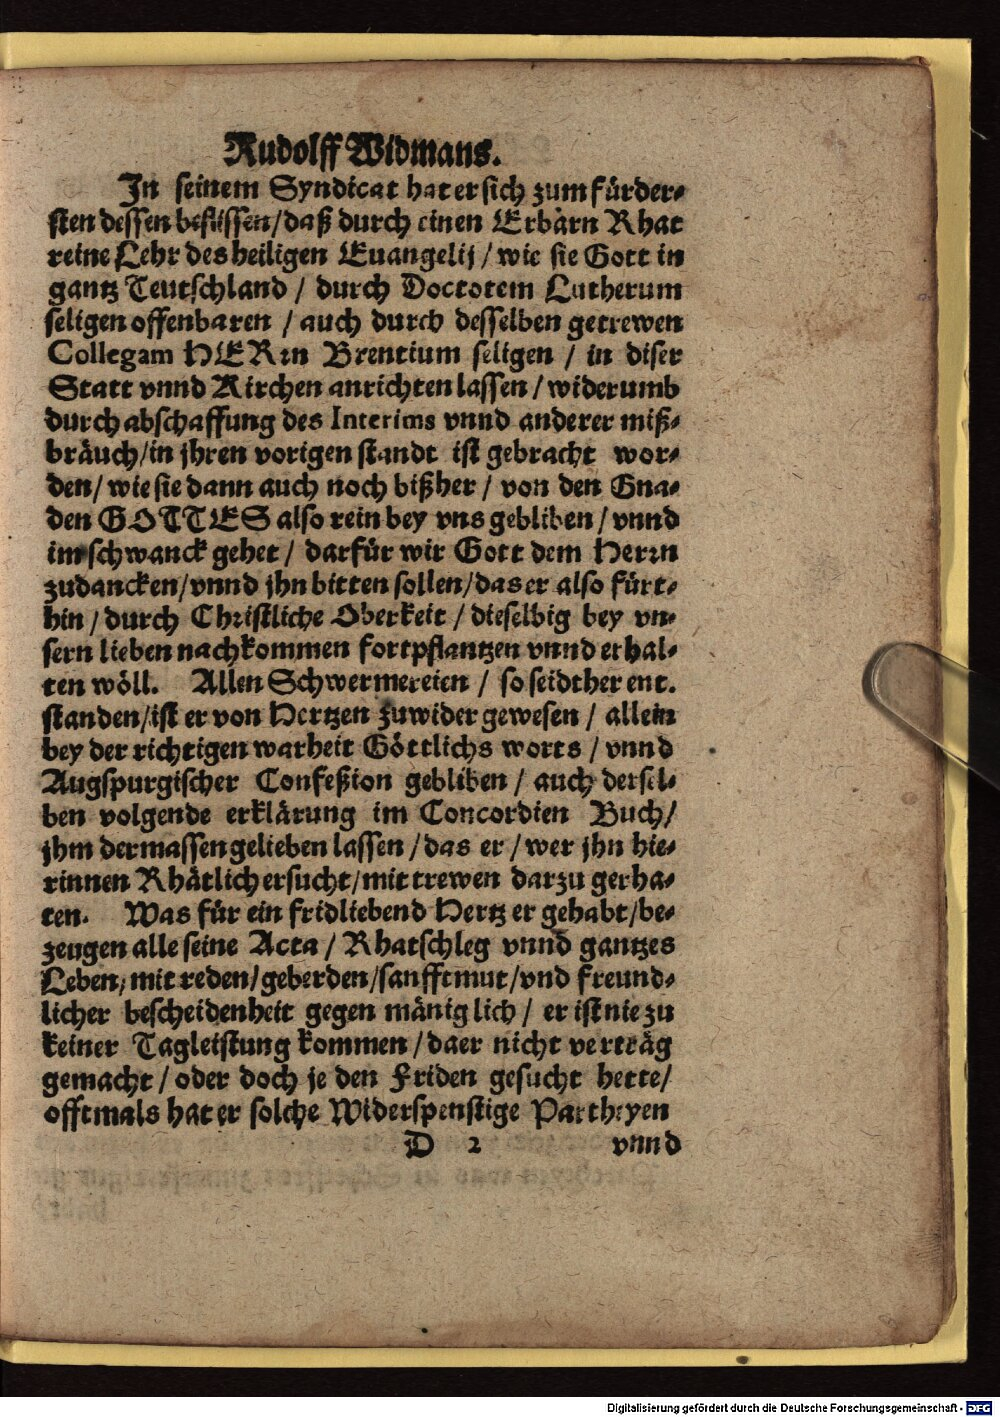 Rudolff Widmans.
In seinem Syndicat hat er sich zum fürder-
sten dessen beflissen/daß durch einen Erbarn Rhat
reine Lehr des heiligen Euangelij/wie sie Gott in
gantz Teutschland/durch Doctotem Lutherum
seligen offenbaren/auch durch desselben getrewen
Collegam HERrn Brentium seligen/in diser
Statt vnnd Kirchen anrichten lassen/widerumb
durch abschaffung des Interims vnnd anderer miß-
bräuch/in jhren vorigen standt ist gebracht wor-
den/wie sie dann auch noch bißher/von den Gna-
den GOTTES also rein bey vns gebliben/vnnd
im schwanck gehet/darfür wir Gott dem Herrn
zudancken/vnnd jhn bitten sollen/das er also fürt-
hin/durch Christliche Oberkeit/dieselbig bey vn-
sern lieben nachkommen fortpflantzen vnnd erhal-
ten wöll. Allen Schwermereien/so seidther ent.
standen/ist er von Hertzen zuwider gewesen/allein
bey der richtigen warheit Göttlichs worts/vnnd
Augspurgischer Confeßion gebliben/auch dersel-
ben volgende erklärung im Concordien Buch/
jhm dermassen gelieben lassen/das er/wer jhn hie-
rinnen Rhätlich ersucht/mit trewen darzu gerha-
ten. Was für ein fridliebend Hertz er gehabt/be-
zeugen alle seine Acta/Rhatschleg vnnd gantzes
Leben/mit reden/geberden/sanfftmut/vnd freund-
licher bescheidenheit gegen mäniglich/er ist nie zu
keiner Tagleistung kommen/da er nicht verträg
gemacht/oder doch je den Friden gesucht hette/
offtmals hat er solche Widerspenstige Partheyen
D 2 vnnd
Digitalisierung gefördert durch die Deutsche Forschungsgemeinschaft - DFG